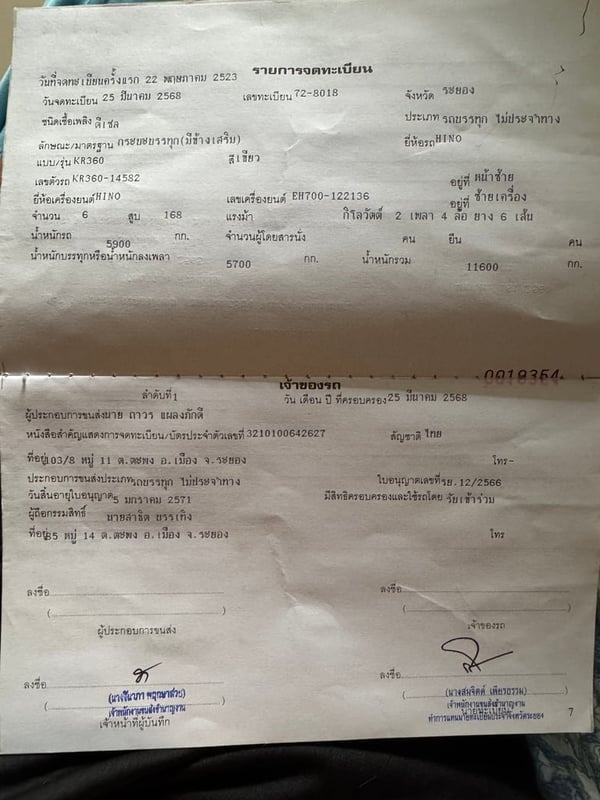 รายการจดทะเบียน
วันที่จดทะเบียนครั้งแรก 22 พฤษภาคม 2523
วันจดทะเบียน 25 มีนาคม 2568 เลขทะเบียน 72-8018 จังหวัด ระยอง
ชนิดเชื้อเพลิง ดีเซล ประเภท รถบรรทุก ไม่ประจำทาง
ลักษณะ/มาตรฐาน กระบะบรรทุก(มีข้างเสริม) ยี่ห้อรถ HINO
แบบ/รุ่น KR360 สี เขียว
เลขตัวรถ KR360-14582 อยู่ที่ หน้าซ้าย
ยี่ห้อเครื่องยนต์ HINO เลขเครื่องยนต์ EH700-122136 อยู่ที่ ซ้ายเครื่อง
จำนวน 6 สูบ 168 แรงม้า กิโลวัตต์ 2 เพลา 4 ล้อ ยาง 6 เส้น
น้ำหนักรถ 5900 กก. จำนวนผู้โดยสารนั่ง คน ยืน คน
น้ำหนักบรรทุกหรือน้ำหนักลงเพลา 5700 กก. น้ำหนักรวม 11600 กก.
0019354
เจ้าของรถ
ลำดับที่ 1 วัน เดือน ปี ที่ครอบครอง 25 มีนาคม 2568
ผู้ประกอบการขนส่ง นาย ถาวร แผลงภักดี
หนังสือสำคัญแสดงการจดทะเบียน/บัตรประจำตัวเลขที่ 3210100642627 สัญชาติ ไทย
ที่อยู่ 103/8 หมู่ 11 ต.ตะพง อ.เมือง จ.ระยอง โทร-
ประกอบการขนส่งประเภท รถบรรทุก ไม่ประจำทาง ใบอนุญาตเลขที่ รย.12/2566
วันสิ้นอายุใบอนุญาต 5 มกราคม 2571 มีสิทธิครอบครองและใช้รถโดย
ผู้ถือกรรมสิทธิ์ บรรเทิง
ที่อยู่ 85 หมู่ 14 ต.ตะพง อ.เมือง จ.ระยอง โทร
ลงชื่อ ลงชื่อ
( ) ( )
ผู้ประกอบการขนส่ง เจ้าของรถ
ลงชื่อ ลงชื่อ
พฤกษาสวย) (นางสมจิตต์ เพียรธรรม)
เจ้าพนักงานขนส่งชำนาญงาน เจ้าพนักงานขนส่งชำนาญงาน
เจ้าหน้าที่ผู้บันทึก นายทะเบียน
ทำการแทนนายทะเบียนประจำจังหวัดระยอง
7